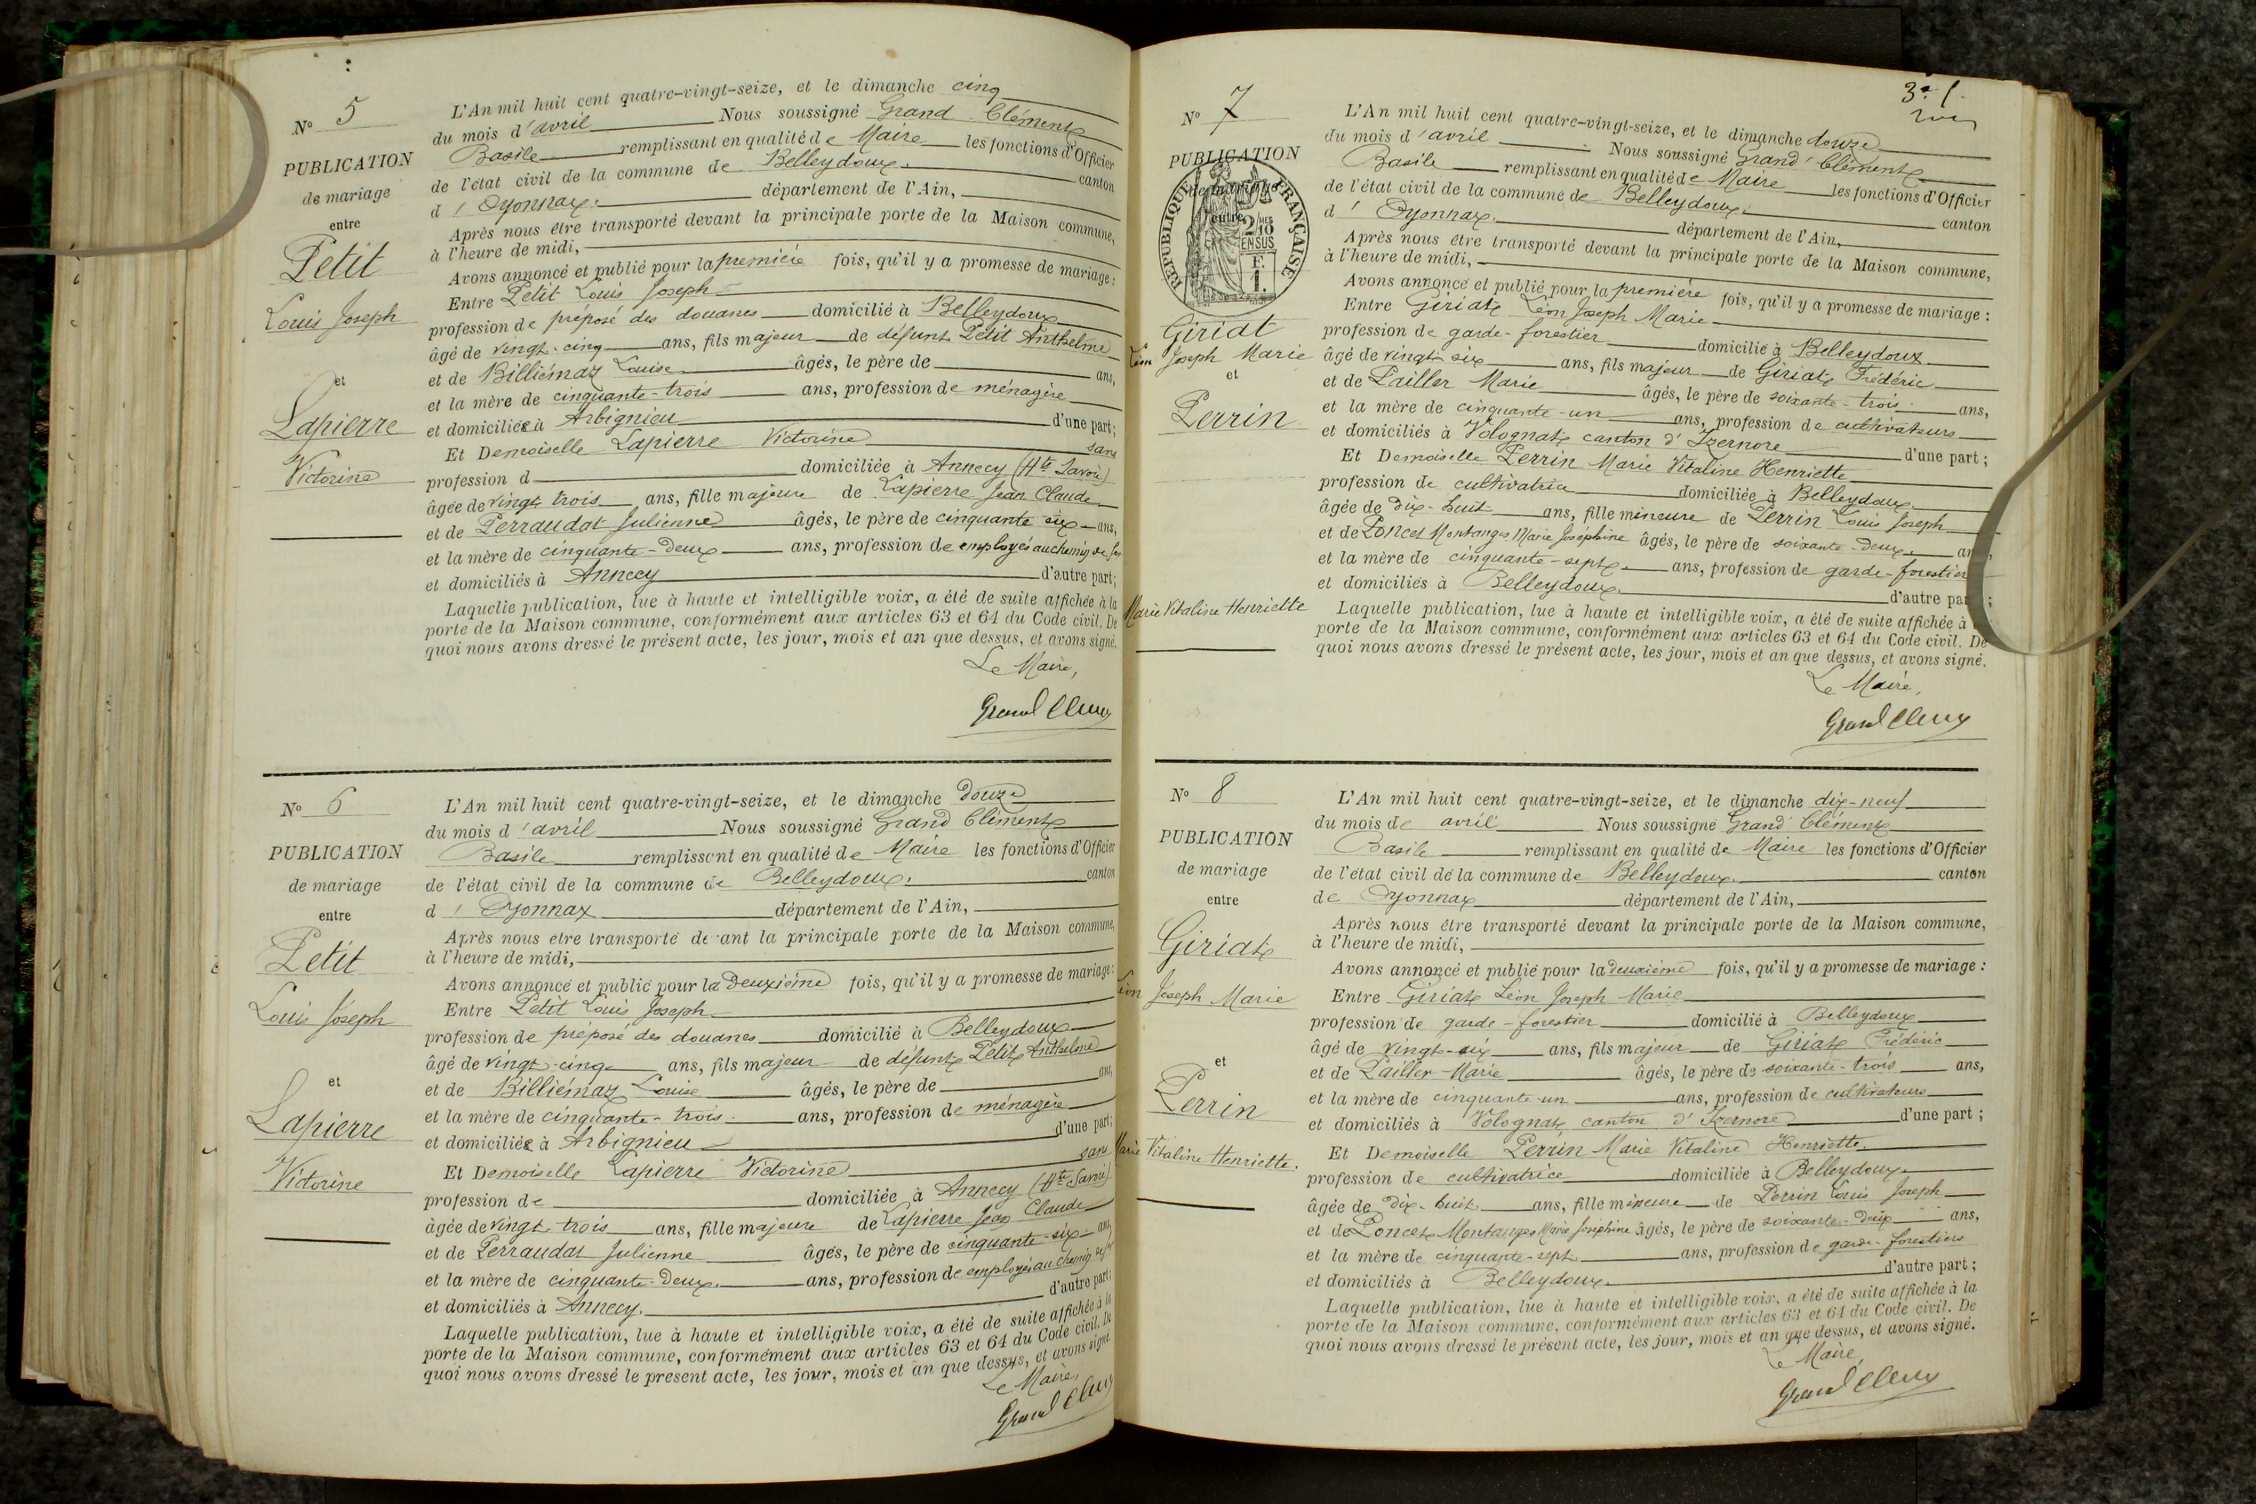 N° 5
PUBLICATION
de mariage
entre
Petit
Louis Joseph
et
Lapierre
Victorine
L'An mil huit cent quatre-vingt-seize, et le dimanche cinq
du mois d'avril Nous soussigné Grand Clément
Basile remplissant en qualité de Maire les fonctions d'Officier
de l'état civil de la commune de Belleydoux. canton
d'Oyonnax. département de l'Ain,
Après nous être transporté devant la principale porte de la Maison commune,
à l'heure de midi,
Avons annoncé et publié pour la première fois, qu'il y a promesse de mariage :
Entre Petit Louis Joseph
profession de préposé des douanes domicilié à Belleydoux
âgé de vingt-cinq ans, fils majeur de défunt Petit Anthelme
et de Billiémaz Louise âgés, le père de ans,
et la mère de cinquante-trois ans, profession de ménagère
et domiciliée à Arbignieu d'une part;
Et Demoiselle Lapierre Victorine sans
profession d domiciliée à Annecy (Hte Savoie)
âgée de vingt trois ans, fille majeure de Lapierre Jean Claude
et de Perraudat Julienne âgés, le père de cinquante six ans,
et la mère de cinquante-deux ans, profession de employés au chemin de fer
et domiciliés à Annecy d'autre part;
Laquelle publication, lue à haute et intelligible voix, a été de suite affichée à la
porte de la Maison commune, conformément aux articles 63 et 64 du Code civil. De
quoi nous avons dressé le présent acte, les jour, mois et an que dessus, et avons signé.
Le Maire,
Grand Clem
N° 6
PUBLICATION
de mariage
entre
Petit
Louis Joseph
et
Lapierre
Victorine
L'An mil huit cent quatre-vingt-seize, et le dimanche douze
du mois d'avril Nous soussigné Grand Clément
Basile remplissant en qualité de Maire les fonctions d'Officier
de l'état civil de la commune de Belleydoux. canton
d'Oyonnax département de l'Ain,
Après nous être transporté devant la principale porte de la Maison commune,
à l'heure de midi,
Avons annoncé et publié pour la deuxième fois, qu'il y a promesse de mariage :
Entre Petit Louis Joseph
profession de préposé des douanes domicilié à Belleydoux
âgé de vingt-cinq ans, fils majeur de défunt Petit Anthelme
et de Billiémaz Louise âgés, le père de ans,
et la mère de cinquante-trois. ans, profession de ménagère
et domiciliée à Arbignieu d'une part;
Et Demoiselle Lapierre Victorine sans
profession de domiciliée à Annecy (Hte Savoie)
âgée de vingt trois ans, fille majeure de Lapierre Jean Claude
et de Perraudat Julienne âgés, le père de cinquante-six ans,
et la mère de cinquante-deux. ans, profession de employés au chemin de fer
et domiciliés à Annecy. d'autre part;
Laquelle publication, lue à haute et intelligible voix, a été de suite affichée à la
porte de la Maison commune, conformément aux articles 63 et 64 du Code civil. De
quoi nous avons dressé le présent acte, les jour, mois et an que dessus, et avons signé.
Le Maire,
Grand Clem
3e f.
N° 7
PUBLICATION
de mariage
entre
RÉPUBLIQUE FRANÇAISE
2/10
EN SUS
F.
1.
Giriat
Léon Joseph Marie
et
Perrin
Marie Vitaline Henriette
L'An mil huit cent quatre-vingt-seize, et le dimanche douze
du mois d'avril Nous soussigné Grand Clément
Basile remplissant en qualité de Maire les fonctions d'Officier
de l'état civil de la commune de Belleydoux. canton
d'Oyonnax. département de l'Ain,
Après nous être transporté devant la principale porte de la Maison commune,
à l'heure de midi,
Avons annoncé et publié pour la première fois, qu'il y a promesse de mariage :
Entre Giriat Léon Joseph Marie
profession de garde-forestier domicilié à Belleydoux
âgé de vingt six ans, fils majeur de Giriat Frédéric
et de Pailler Marie âgés, le père de soixante-trois ans,
et la mère de cinquante-un ans, profession de cultivateurs
et domiciliés à Volognat canton d'Izernore d'une part ;
Et Demoiselle Perrin Marie Vitaline Henriette
profession de cultivatrice domiciliée à Belleydoux
âgée de dix-huit ans, fille mineure de Perrin Louis Joseph
et de Poncet Montanges Marie Joséphine âgés, le père de soixante-deux ans,
et la mère de cinquante-sept ans, profession de garde-forestier
et domiciliés à Belleydoux. d'autre part ;
Laquelle publication, lue à haute et intelligible voix, a été de suite affichée à
porte de la Maison commune, conformément aux articles 63 et 64 du Code civil. De
quoi nous avons dressé le présent acte, les jour, mois et an que dessus, et avons signé.
Le Maire,
Grand Clem
N° 8
PUBLICATION
de mariage
entre
Giriat
Léon Joseph Marie
et
Perrin
Marie Vitaline Henriette.
L'An mil huit cent quatre-vingt-seize, et le dimanche dix-neuf
du mois de avril Nous soussigné Grand Clément
Basile remplissant en qualité de Maire les fonctions d'Officier
de l'état civil de la commune de Belleydoux. canton
de Oyonnax département de l'Ain,
Après nous être transporté devant la principale porte de la Maison commune,
à l'heure de midi,
Avons annoncé et publié pour la deuxième fois, qu'il y a promesse de mariage :
Entre Giriat Léon Joseph Marie
profession de garde-forestier domicilié à Belleydoux
âgé de vingt-six ans, fils majeur de Giriat Frédéric
et de Pailler Marie âgés, le père de soixante-trois ans,
et la mère de cinquante un ans, profession de cultivateurs
et domiciliés à Volognat, canton d'Izernore d'une part ;
Et Demoiselle Perrin Marie Vitaline Henriette.
profession de cultivatrice domiciliée à Belleydoux
âgée de dix-huit ans, fille mineure de Perrin Louis Joseph
et de Poncet Montanges Marie Joséphine âgés, le père de soixante-deux ans,
et la mère de cinquante-sept ans, profession de garde-forestiers
et domiciliés à Belleydoux. d'autre part ;
Laquelle publication, lue à haute et intelligible voix, a été de suite affichée à la
porte de la Maison commune, conformément aux articles 63 et 64 du Code civil. De
quoi nous avons dressé le présent acte, les jour, mois et an que dessus, et avons signé.
Le Maire,
Grand Clem